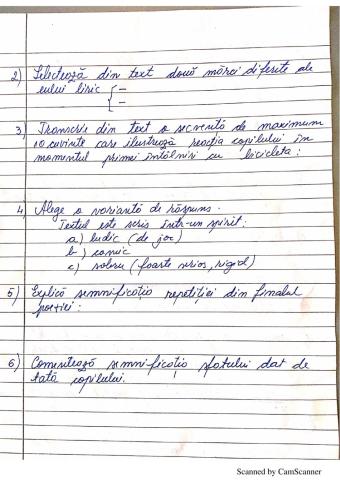 2) Selectează din text două mărci diferite ale
eului liric { –
–
3) Transcrie din text o secvență de maximum
10 cuvinte care ilustrează reacția copilului în
momentul primei întâlniri cu bicicleta :
4) Alege o variantă de răspuns.
Textul este scris într-un spirit :
a) ludic (de joc)
b) comic
c) sobru (foarte serios, rigid)
5) Explică semnificația repetiției din finalul
poeziei :
6) Comentează semnificația sfatului dat de
tată copilului.
Scanned by CamScanner